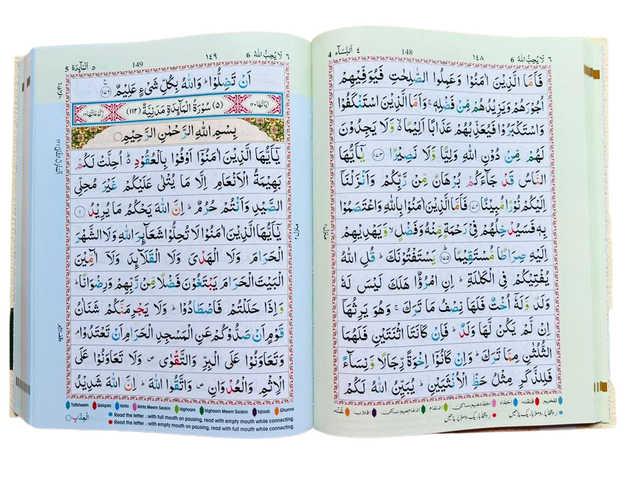 ٦ لَا يُحِبُّ اللهُ 6
١٤٨ 148
٤ اَلنِّسَآء 4
فَاَمَّا الَّذِيْنَ اٰمَنُوْا وَعَمِلُوا الصّٰلِحٰتِ فَيُوَفِّيْهِمْ
اُجُوْرَهُمْ وَيَزِيْدُهُمْ مِّنْ فَضْلِهٖ ۚ وَاَمَّا الَّذِيْنَ اسْتَنْكَفُوْا
وَاسْتَكْبَرُوْا فَيُعَذِّبُهُمْ عَذَابًا اَلِيْمًا ۙ وَّلَا يَجِدُوْنَ
لَهُمْ مِّنْ دُوْنِ اللهِ وَلِيًّا وَّلَا نَصِيْرًا ﴿١٧٣﴾ يٰٓاَيُّهَا
النَّاسُ قَدْ جَآءَكُمْ بُرْهَانٌ مِّنْ رَّبِّكُمْ وَاَنْزَلْنَآ
اِلَيْكُمْ نُوْرًا مُّبِيْنًا ﴿١٧٤﴾ فَاَمَّا الَّذِيْنَ اٰمَنُوْا بِاللهِ وَاعْتَصَمُوْا
بِهٖ فَسَيُدْخِلُهُمْ فِيْ رَحْمَةٍ مِّنْهُ وَفَضْلٍ ۙ وَّيَهْدِيْهِمْ
اِلَيْهِ صِرَاطًا مُّسْتَقِيْمًا ﴿١٧٥﴾ يَسْتَفْتُوْنَكَ ؕ قُلِ اللهُ
يُفْتِيْكُمْ فِي الْكَلٰلَةِ ؕ اِنِ امْرُؤٌا هَلَكَ لَيْسَ لَهٗ
وَلَدٌ وَّلَهٗٓ اُخْتٌ فَلَهَا نِصْفُ مَا تَرَكَ ۚ وَهُوَ يَرِثُهَآ
اِنْ لَّمْ يَكُنْ لَّهَا وَلَدٌ ؕ فَاِنْ كَانَتَا اثْنَتَيْنِ فَلَهُمَا
الثُّلُثٰنِ مِمَّا تَرَكَ ؕ وَاِنْ كَانُوْٓا اِخْوَةً رِّجَالًا وَّنِسَآءً
فَلِلذَّكَرِ مِثْلُ حَظِّ الْاُنْثَيَيْنِ ؕ يُبَيِّنُ اللهُ لَكُمْ
لَا يُحِبُّ اللهُ 6
١٤٩ 149
اَلْمَآئِدَة ٥ 5
اَنْ تَضِلُّوْا ؕ وَاللهُ بِكُلِّ شَيْءٍ عَلِيْمٌ ﴿١٧٦﴾
(٥) سُوْرَةُ الْمَآئِدَةِ مَدَنِيَّةٌ (١١٢)
بِسْمِ اللهِ الرَّحْمٰنِ الرَّحِيْمِ
يٰٓاَيُّهَا الَّذِيْنَ اٰمَنُوْٓا اَوْفُوْا بِالْعُقُوْدِ ؕ اُحِلَّتْ لَكُمْ
بَهِيْمَةُ الْاَنْعَامِ اِلَّا مَا يُتْلٰى عَلَيْكُمْ غَيْرَ مُحِلِّي
الصَّيْدِ وَاَنْتُمْ حُرُمٌ ؕ اِنَّ اللهَ يَحْكُمُ مَا يُرِيْدُ ﴿١﴾
يٰٓاَيُّهَا الَّذِيْنَ اٰمَنُوْا لَا تُحِلُّوْا شَعَآئِرَ اللهِ وَلَا الشَّهْرَ
الْحَرَامَ وَلَا الْهَدْيَ وَلَا الْقَلَآئِدَ وَلَآ آٰمِّيْنَ
الْبَيْتَ الْحَرَامَ يَبْتَغُوْنَ فَضْلًا مِّنْ رَّبِّهِمْ وَرِضْوَانًا ؕ
وَاِذَا حَلَلْتُمْ فَاصْطَادُوْا ؕ وَلَا يَجْرِمَنَّكُمْ شَنَاٰنُ
قَوْمٍ اَنْ صَدُّوْكُمْ عَنِ الْمَسْجِدِ الْحَرَامِ اَنْ تَعْتَدُوْا ۘ
وَتَعَاوَنُوْا عَلَى الْبِرِّ وَالتَّقْوٰى ۪ وَلَا تَعَاوَنُوْا عَلَى
الْاِثْمِ وَالْعُدْوَانِ ۪ وَاتَّقُوا اللهَ ؕ اِنَّ اللهَ شَدِيْدُ
الْعِقَابِ
Tafkheem Qalqala Ikhfa Ikhfa Meem Saakin Idghaam Idghaam Meem Saakin Iqlaab Ghunna
Read the letter ر with full mouth on pausing, read with empty mouth while connecting.
Read the letter ر with empty mouth on pausing, read with full mouth while connecting.